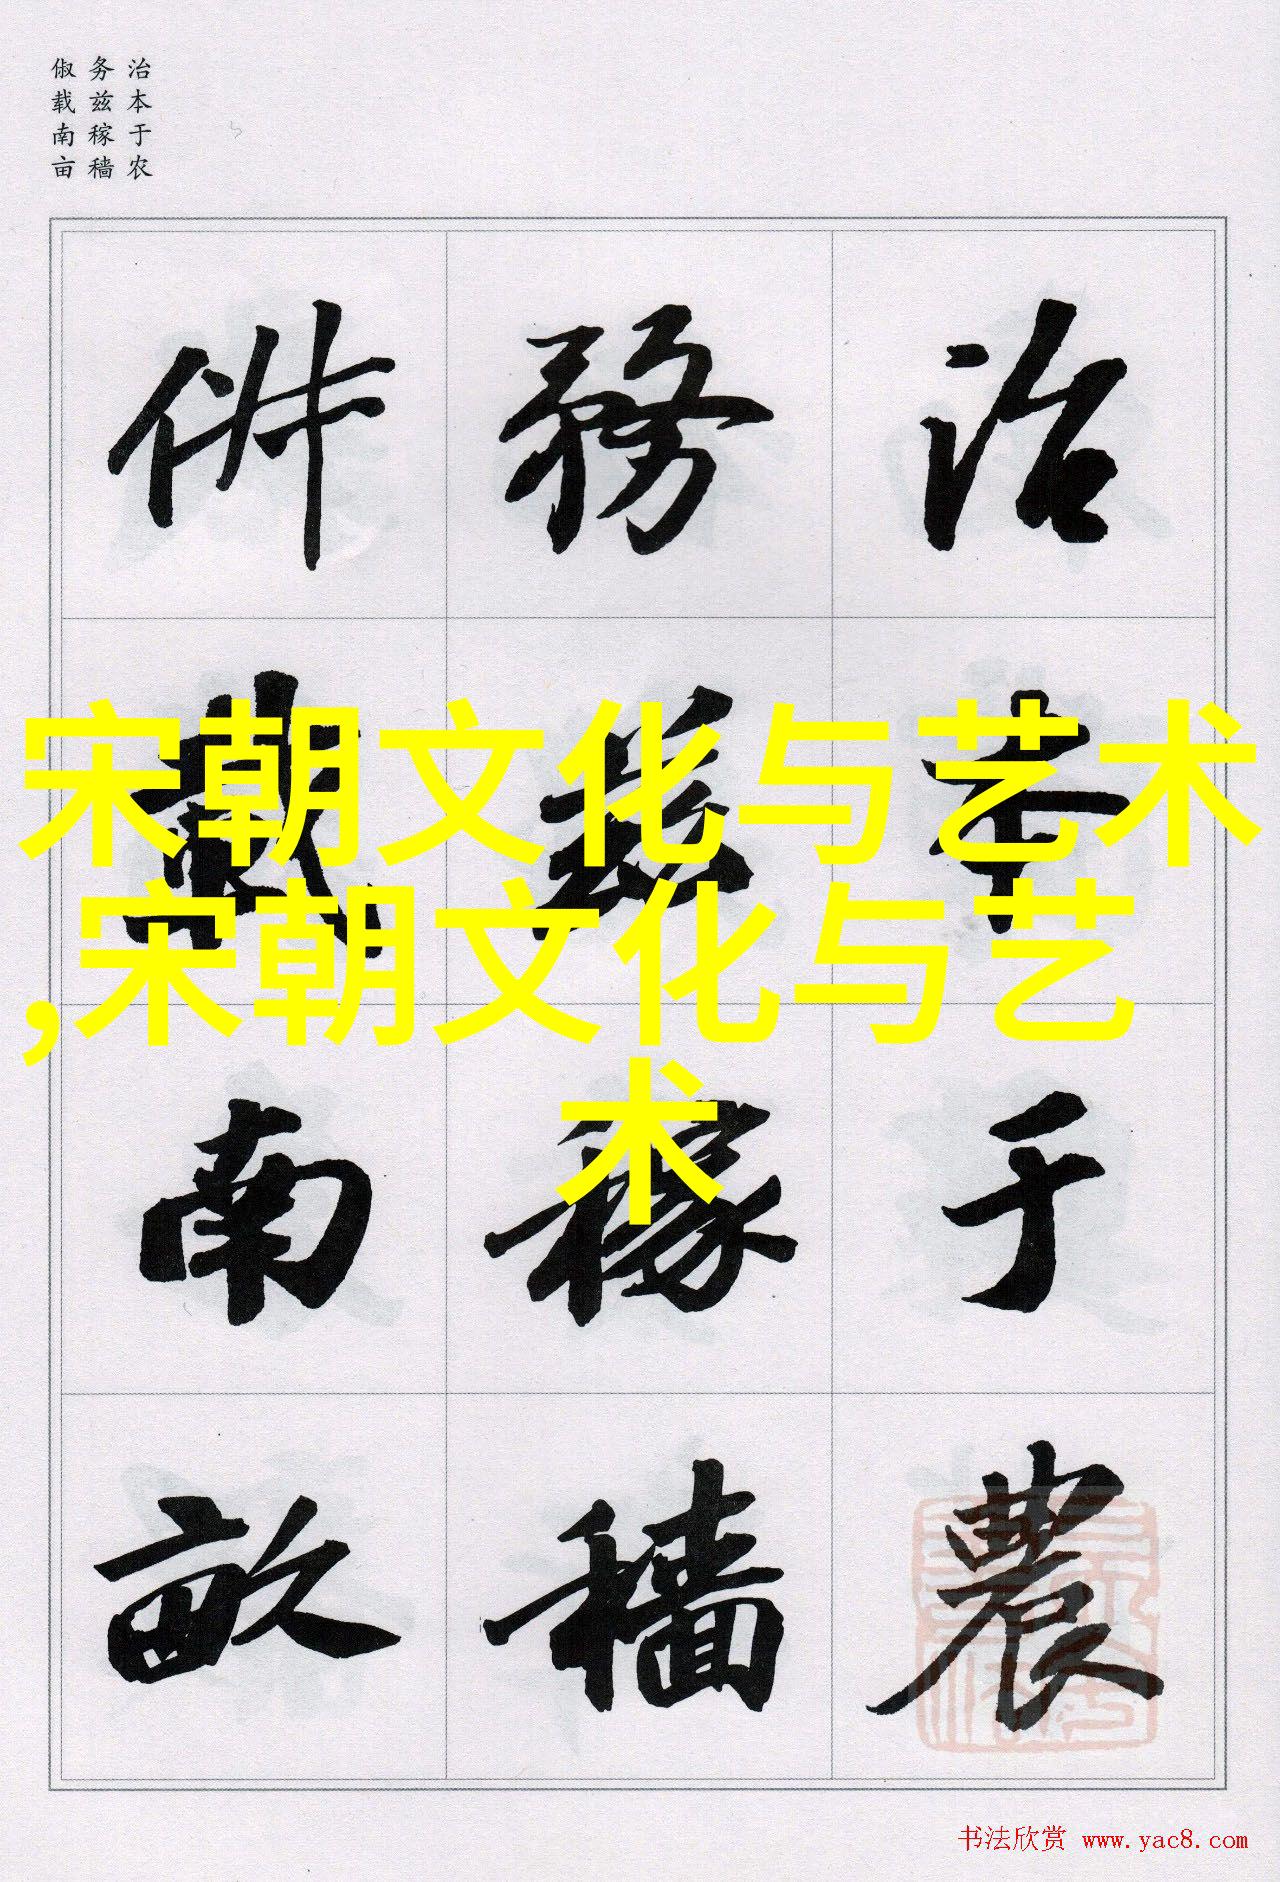 治本于农
务兹稼穑
俶载南亩
治本于農
務茲稼穡
俶載南畝
宋朝文化与艺术
,宋朝文化与艺
术
书法欣赏 www.yac8.com